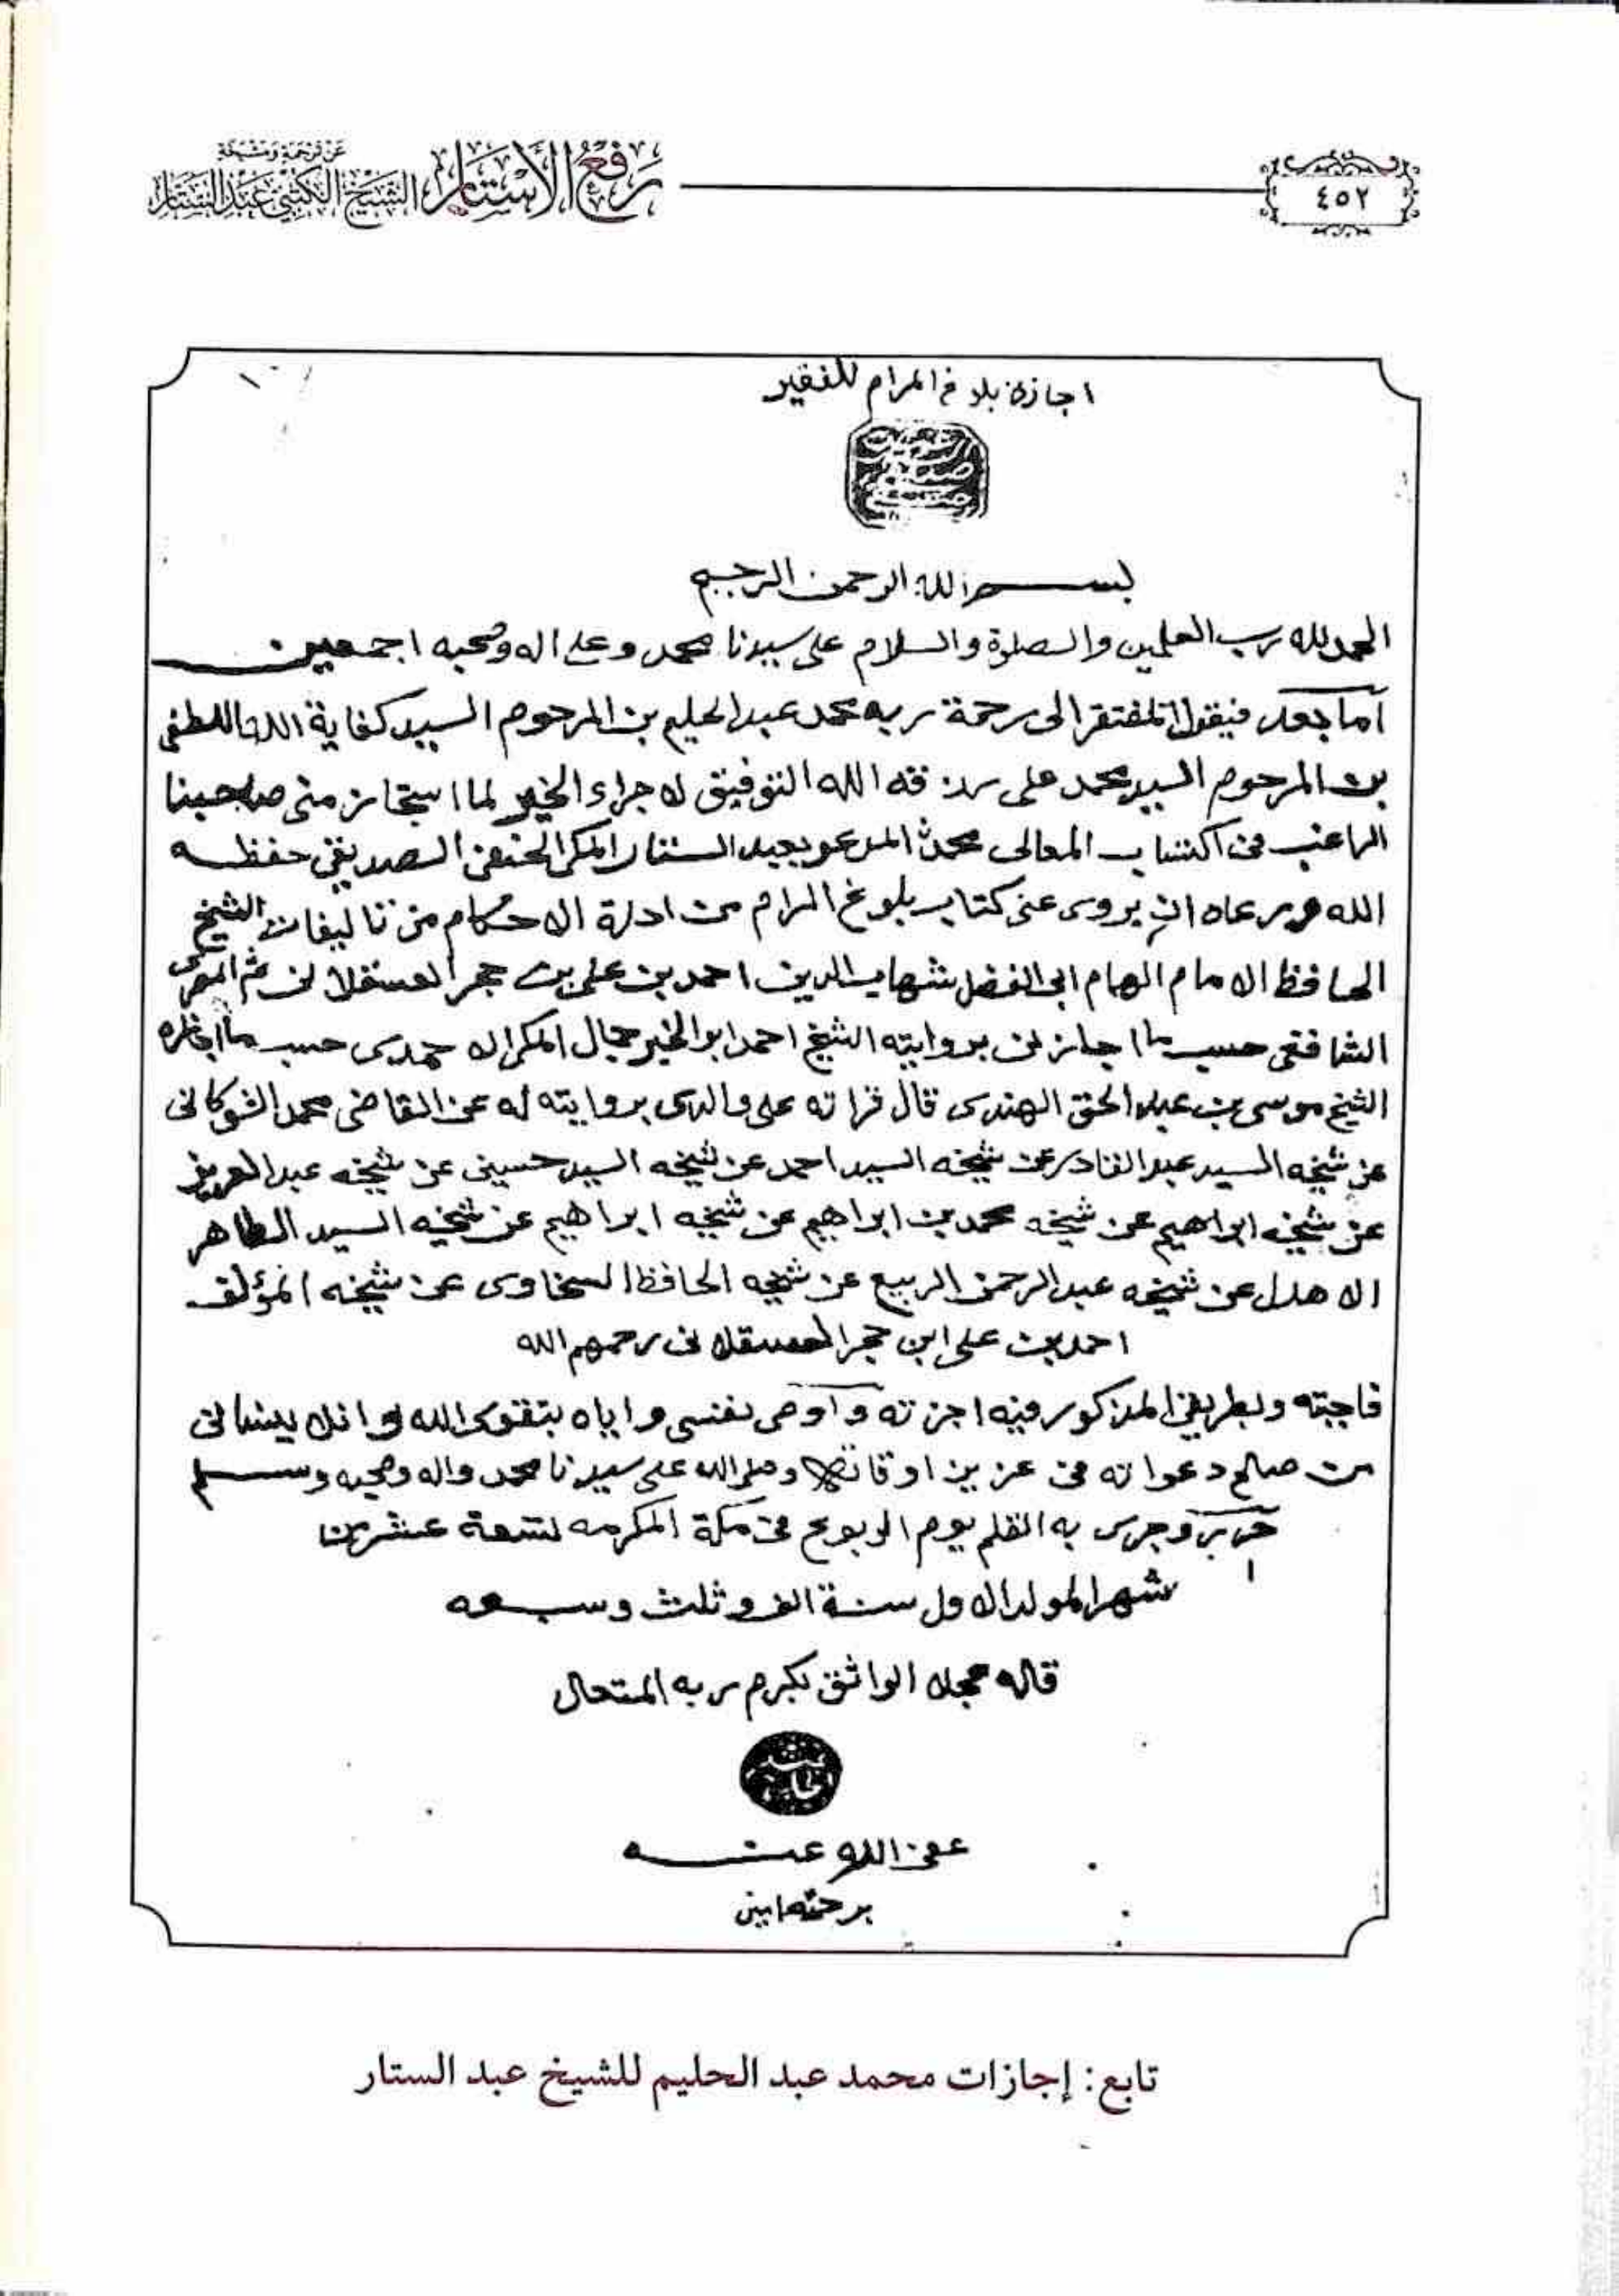 ٤٥٢
رفع الأستار
عن ترجمة ومشيخة
الشيخ الكتبي عبد الستار
اجازة بلوغ المرام للفقير
بسم الله الرحمن الرحيم
الحمد لله رب العلمين والصلوة والسلام على سيدنا محمد وعلى اله وصحبه اجمعين
أما بعد فيقول المفتقر الى رحمة ربه محمد عبد الحليم بن المرحوم السيد كفاية الله اللطفي
بن المرحوم السيد محمد على رزقه الله التوفيق لاجراء الخير لما استجاز منى صاحبنا
الراغب فى اكتساب المعالى محمد المدعو بعبد الستار المكى الحنفى الصديقى حفظه
الله ورعاه ان يروى عنى كتاب بلوغ المرام من ادلة الاحكام من تاليفات الشيخ
الحافظ الامام الهمام ابى الفضل شهاب الدين احمد بن على بن حجر العسقلانى ثم المصرى
الشافعى حسب ما اجازنى بروايته الشيخ احمد ابو الخير جمال المكى الاحمدى حسب ما اجازه
الشيخ موسى بن عبد الحق الهندى قال قراته على والدى بروايته له عن القاضى محمد الشوكانى
عن شيخه السيد عبد القادر عن شيخه السيد احمد عن شيخه السيد حسين عن شيخه عبد العزيز
عن شيخه ابراهيم عن شيخه محمد بن ابراهيم عن شيخه ابراهيم عن شيخه السيد الطاهر
الاهدل عن شيخه عبد الرحمن الربيع عن شيخه الحافظ السخاوى عن شيخه المؤلف
احمد بن على ابن حجر العسقلانى رحمهم الله
فاجبته وبطريق المذكور فيه اجزته وأوصى نفسى واياه بتقوى الله وان لا ينسانى
من صالح دعواته فى عزيز اوقاته وصلى الله على سيدنا محمد واله وصحبه وسلم
حرر وجرى به القلم يوم الربوع فى مكة المكرمه لتسعة عشر من
شهر المولد الاول سنة الف وثلث وسبعه
قاله عجلا الواثق بكرم ربه المتعال
عفى الله عنه
برحمته امين
تابع: إجازات محمد عبد الحليم للشيخ عبد الستار